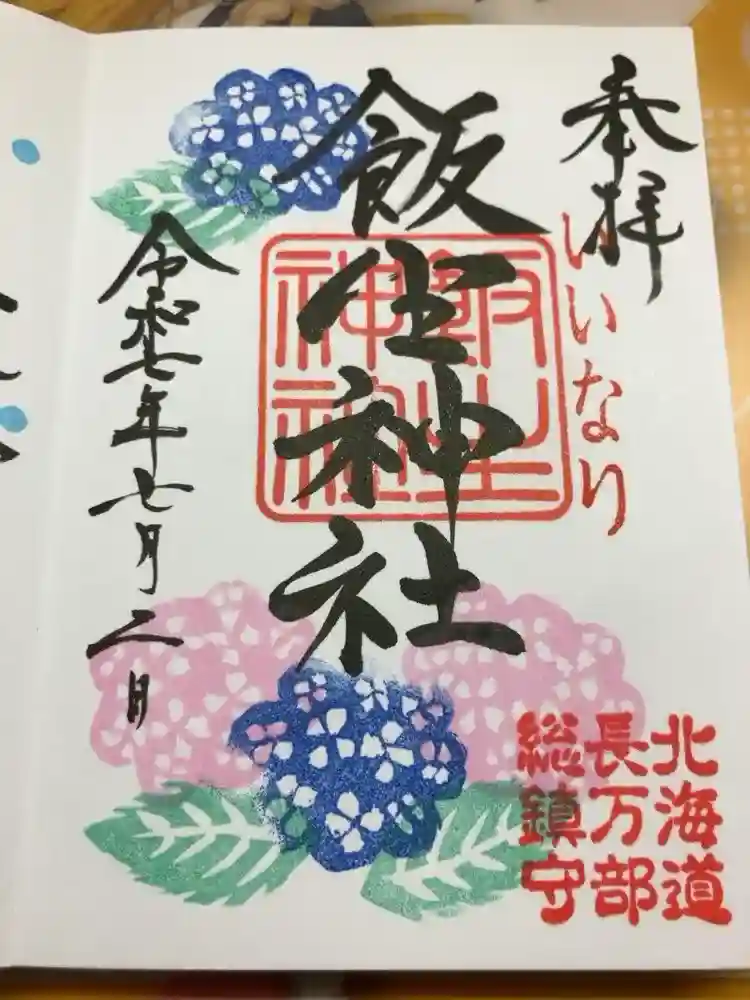 奉拝
いいなり
飯生神社
飯生
神社
令和七年七月二日
北海道
長万部
総鎮守